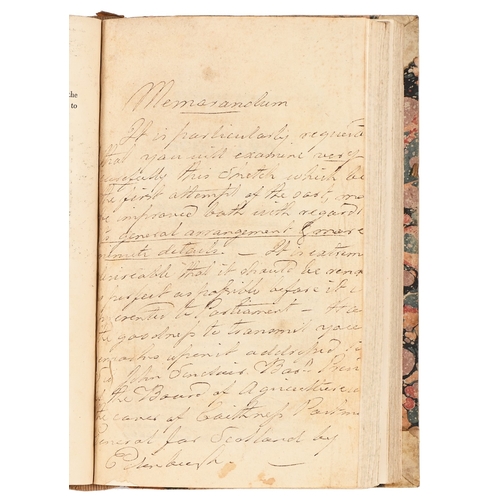 the
to
Memorandum
It is particularly request
that you will examine very
carefully this Sketch which be
the first attempt of the sort, ma
be improved both with regard
to general arrangement & more
minute details. — It is extrem
desireable that it should be rend
perfect as possible before it is
presented to Parliament — 
the goodness to transmit your
remarks upon it addressed to
Sir John Sinclair Bart. Presi
of the Board of Agriculture
the care of Caithness
General for Scotland by
Edinburgh. —